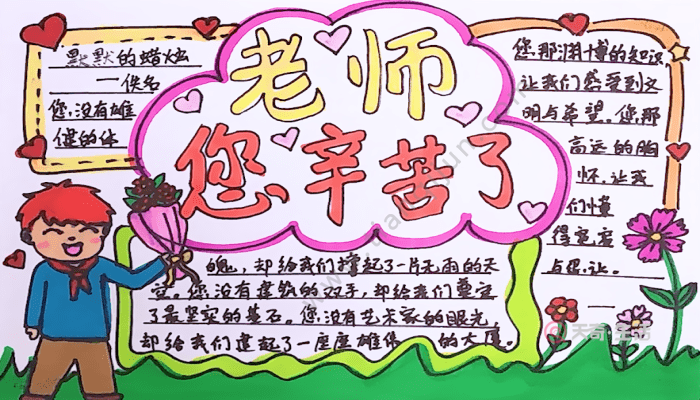 老师
您辛苦了
默默的蜡烛
——佚名
您，没有雄
健的体
魄，却给我们撑起了一片无雨的天
空。您没有建筑的双手，却给我们奠定
了最坚实的基石。您没有艺术家的眼光
却给我们建起了一座座雄伟 的大厦。
您那渊博的知识
让我们感受到文
明与希望。您那
高远的胸
怀，让我
们懂
得宽容
与忍让。
天奇生活